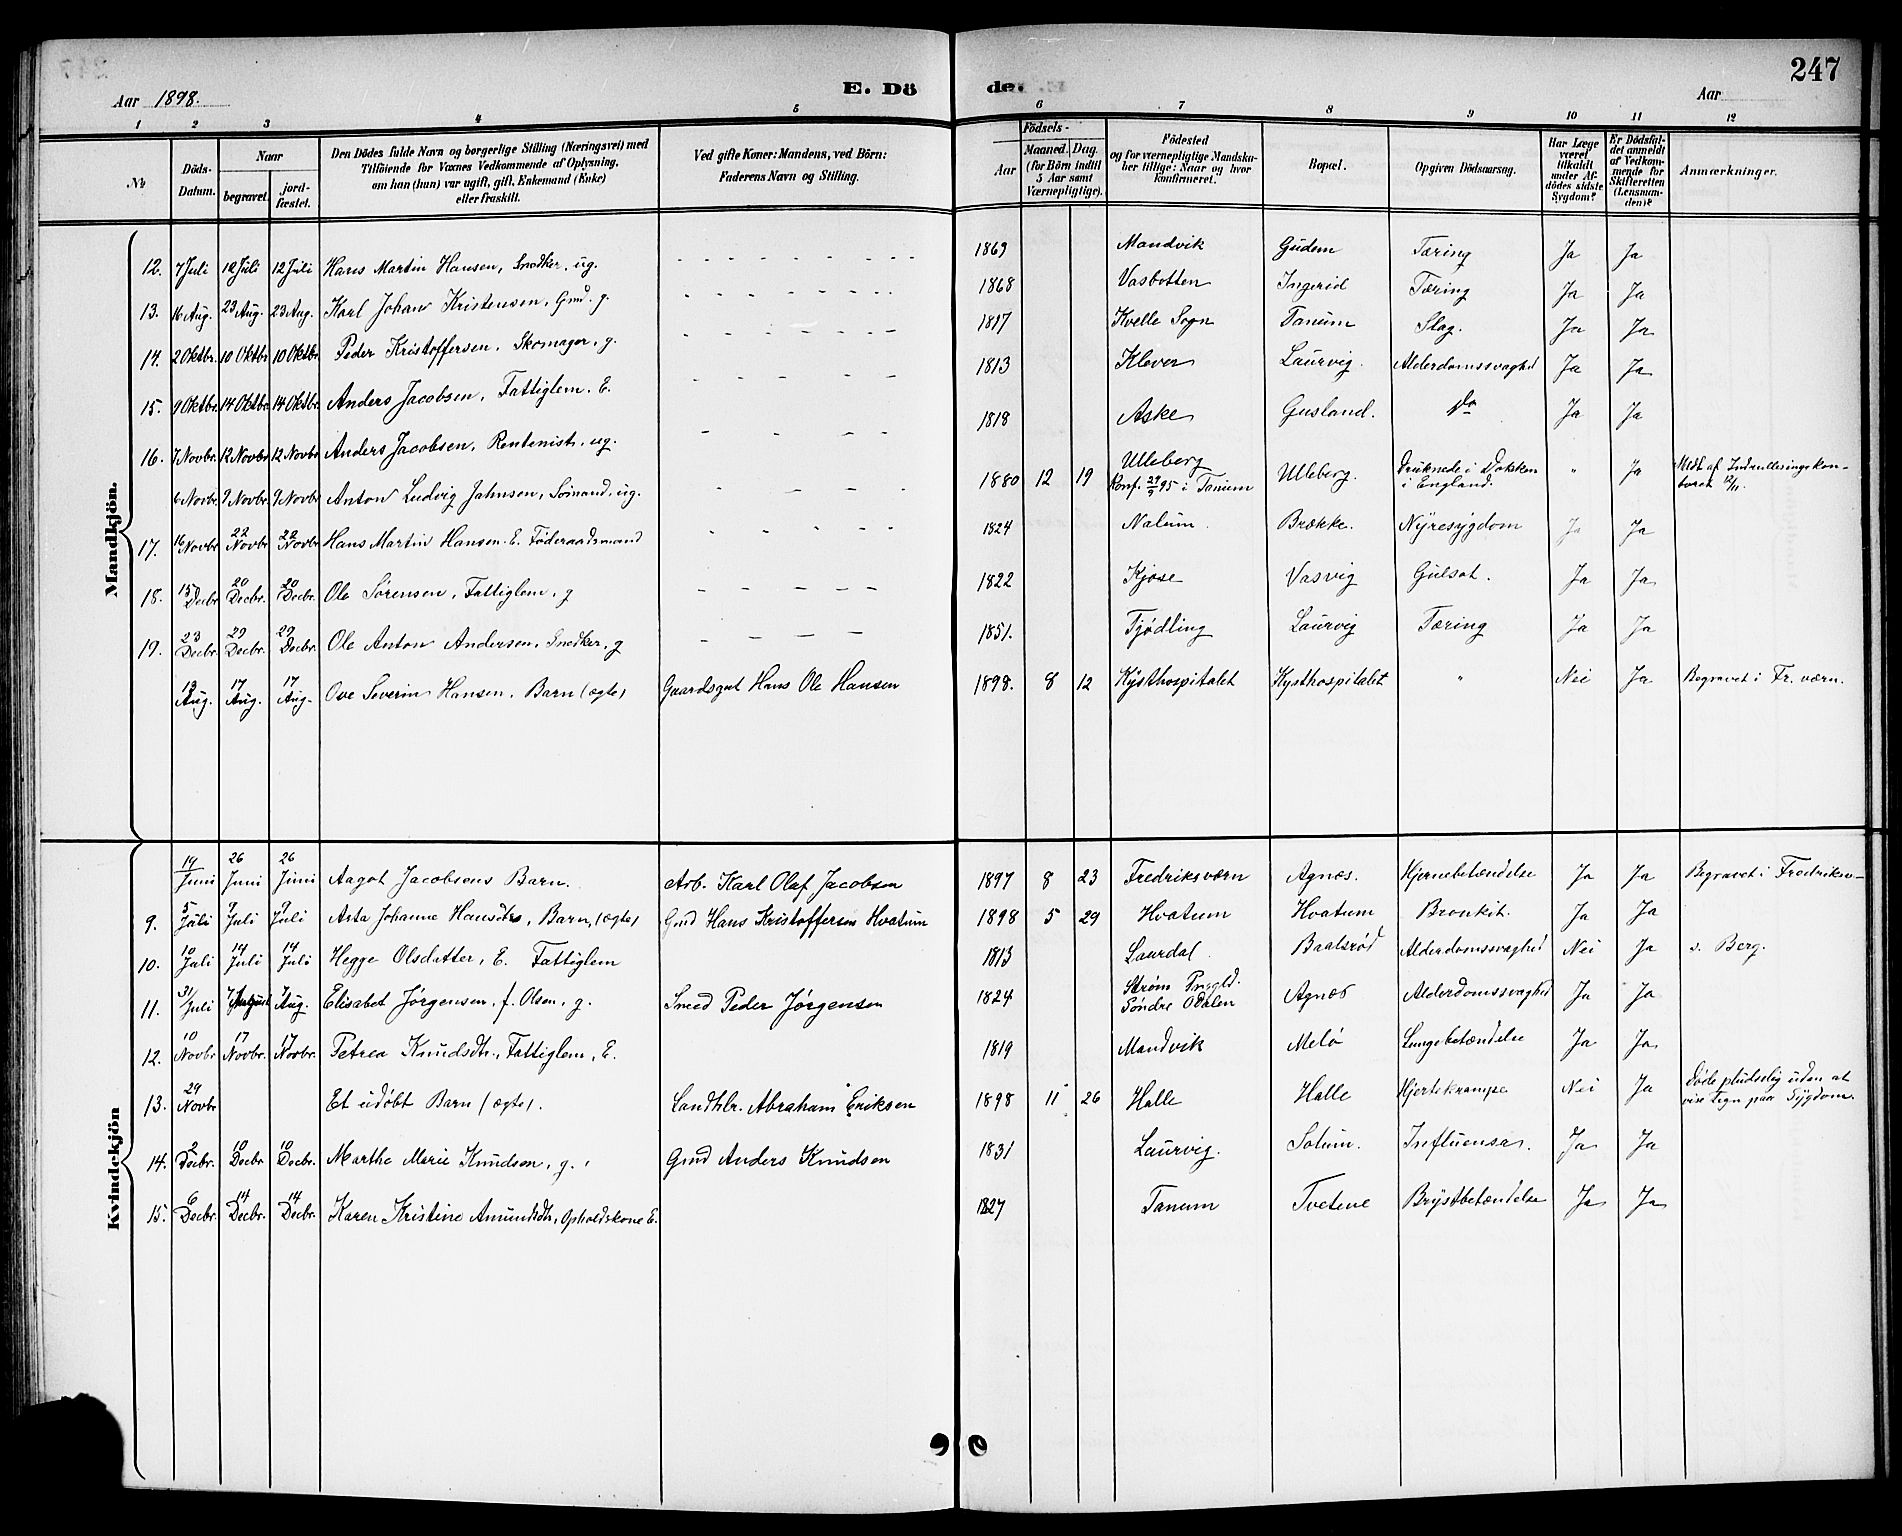 247
Aar 1898.
E. Dö
de.
Aar
1 2 3 4 5 6 7 8 9 10 11 12
№
Döds-Datum.
Naar
begravet.
jord-fæstet.
Den Dödes fulde Navn og borgerlige Stilling (Næringsvei) med
Tilföiende for Voxnes Vedkommende af Oplysning,
om han (hun) var ugift, gift, Enkemand (Enke)
eller fraskilt.
Ved gifte Koner: Mandens, ved Börn:
Faderens Navn og Stilling.
Födsels-
Aar
Maaned. Dag.
(for Börn indtil
5 Aar samt
Værnepligtige).
Födested
og for værnepligtige Mandska-
ber tillige: Naar og hvor
konfirmeret.
Bopæl.
Opgiven Dödsaarsag.
Har Læge
været
tilkaldt
under Af-
dödes sidste
Sygdom?
Er Dödsfal-
det anmeldt
af Vedkom-
mende for
Skifteretten
(Lensman-
den)?
Anmærkninger.
Mandkjön.
12. 7 Juli 12 Juli 12 Juli Hans Martin Hansen, Snedker, ug. 1869 Mandvik Gudem Tæring Ja Ja
13. 16 Aug. 23 Aug. 23 Aug. Karl Johan Kristensen, Gmd. g. 1868 Vasbotten Ingerid Tæring Ja Ja
14. 2 Oktbr. 10 Oktbr 10 Oktbr. Peder Kristoffersen, Skomager, g. 1817 Kvelle Sogn Tanum Slag. Ja Ja
15. 9 Oktbr. 14 Oktbr. 14 Oktbr. Anders Jacobsen, Fattiglem. E. 1813 Klever Laurvig. Alderdomssvaghed Ja Ja
16. 7 Novbr. 12 Novbr 12 Novbr Anders Jacobsen, Rentenist, ug. 1818 Aske Gusland. Do Ja Ja
6 Novbr. 9 Novbr. 9 Novbr. Anton Ludvig Jahnsen, Sömand, ug. 1880 12 19 Ulleberg Konf. 29/9 95 i Tanum Ulleberg. Druknede i Dokken i England. " Ja Medt af Indrulleringskon- 12/11.
17. 16 Novbr 22 Novbr 22 Novbr. Hans Martin Hansen. E. Föderaadsmand 1824 Nalum. Brække. Nyresygdom Ja Ja
18. 15 Decbr 20 Decbr. 20 Decbr. Ole Sörensen, Fattiglem, g 1822 Kjose Vasvig Gulsot. Ja Ja
19. 23 Decbr. 29 Decbr. 29 Decbr. Ole Anton Andersen, Snedker, g 1851. Tjödling Laurvig Tæring Ja Ja
13 Aug. 17 Aug. 17 Aug. Ove Severin Hansen, Barn (ægte) Gaardsgut Hans Ole Hansen 1898. 8 12 Kysthospitalet Kysthospitalet " Nei Ja Begravet i Fr. værn.
Kvindekjön
19/Juni 26 Juni 26 Juni Aagot Jacobsens Barn. Arb. Karl Olaf Jacobsen 1897 8 23 Fredriksværn Agnes. Hjernebetændelse Ja Ja Begravet i Fredriksv-
9. 5 Juli 9 Juli 9 Juli Asta Johanne Hansdtr, Barn, (ægte) Gmd Hans Kristoffersen Hvatum 1898 5 29 Hvatum Hvatum Bronkit. Ja Ja
10. 10 Juli 14 Juli 14 Juli Hegge Olsdatter, E. Fattiglem 1813 Laurdal Baalsröd Alderdomssvaghed Nei Ja s. Berg.
11. 31/Juli 7 August 7 Aug. Elisabet Jörgensen, f. Olsen, g. Smed Peder Jörgensen 1824 Ström Præstgld. Söndre Odalen Agnæs Alderdomssvaghed Ja Ja
12. 10 Novbr 17 Novbr. 17 Novbr. Petrea Knudsdtr., Fattiglem, E. 1819 Mandvik Melö Lungebetændelse Ja Ja
13. 29 Novbr Et udöbt Barn (ægte). Landhdlr. Abraham Eriksen 1898 11 26 Halle Halle Hjertekrampe Nei Ja Döde pludselig uden at vise Tegn paa Sygdom.
14. 2 Decbr. 10 Decbr 10 Decbr. Marthe Marie Knudsen, g. Gmd Anders Knudsen 1831 Laurvig. Solum. Influensa. Ja Ja
15. 6 Decbr. 14 Decbr. 14 Decbr. Karen Kristine Amundsdtr, Opholdskone E. 1827 Tanum Tvetene Brystbetændelse Ja Ja